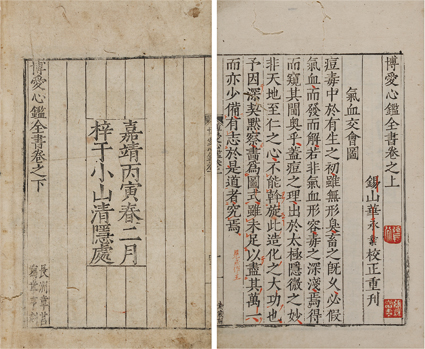 博愛心鑑全書卷之上
氣血交會圖
錫山華永校正重刊
痘毒中於有生之初雖無形臭畜之既久必假
氣血而發而解若非氣血形容毒之深淺焉得
而窺其閫奧乎蓋痘之理出於太極隱微之妙
非天地至仁之心不能斡旋此造化之大功也
予因深契黙察畵為圖式雖未足以盡其萬一
而亦少備有志於是道者究焉
嘉靖丙寅春二月
梓于小山清隱處
博愛心鑑全書卷之下
長洲章